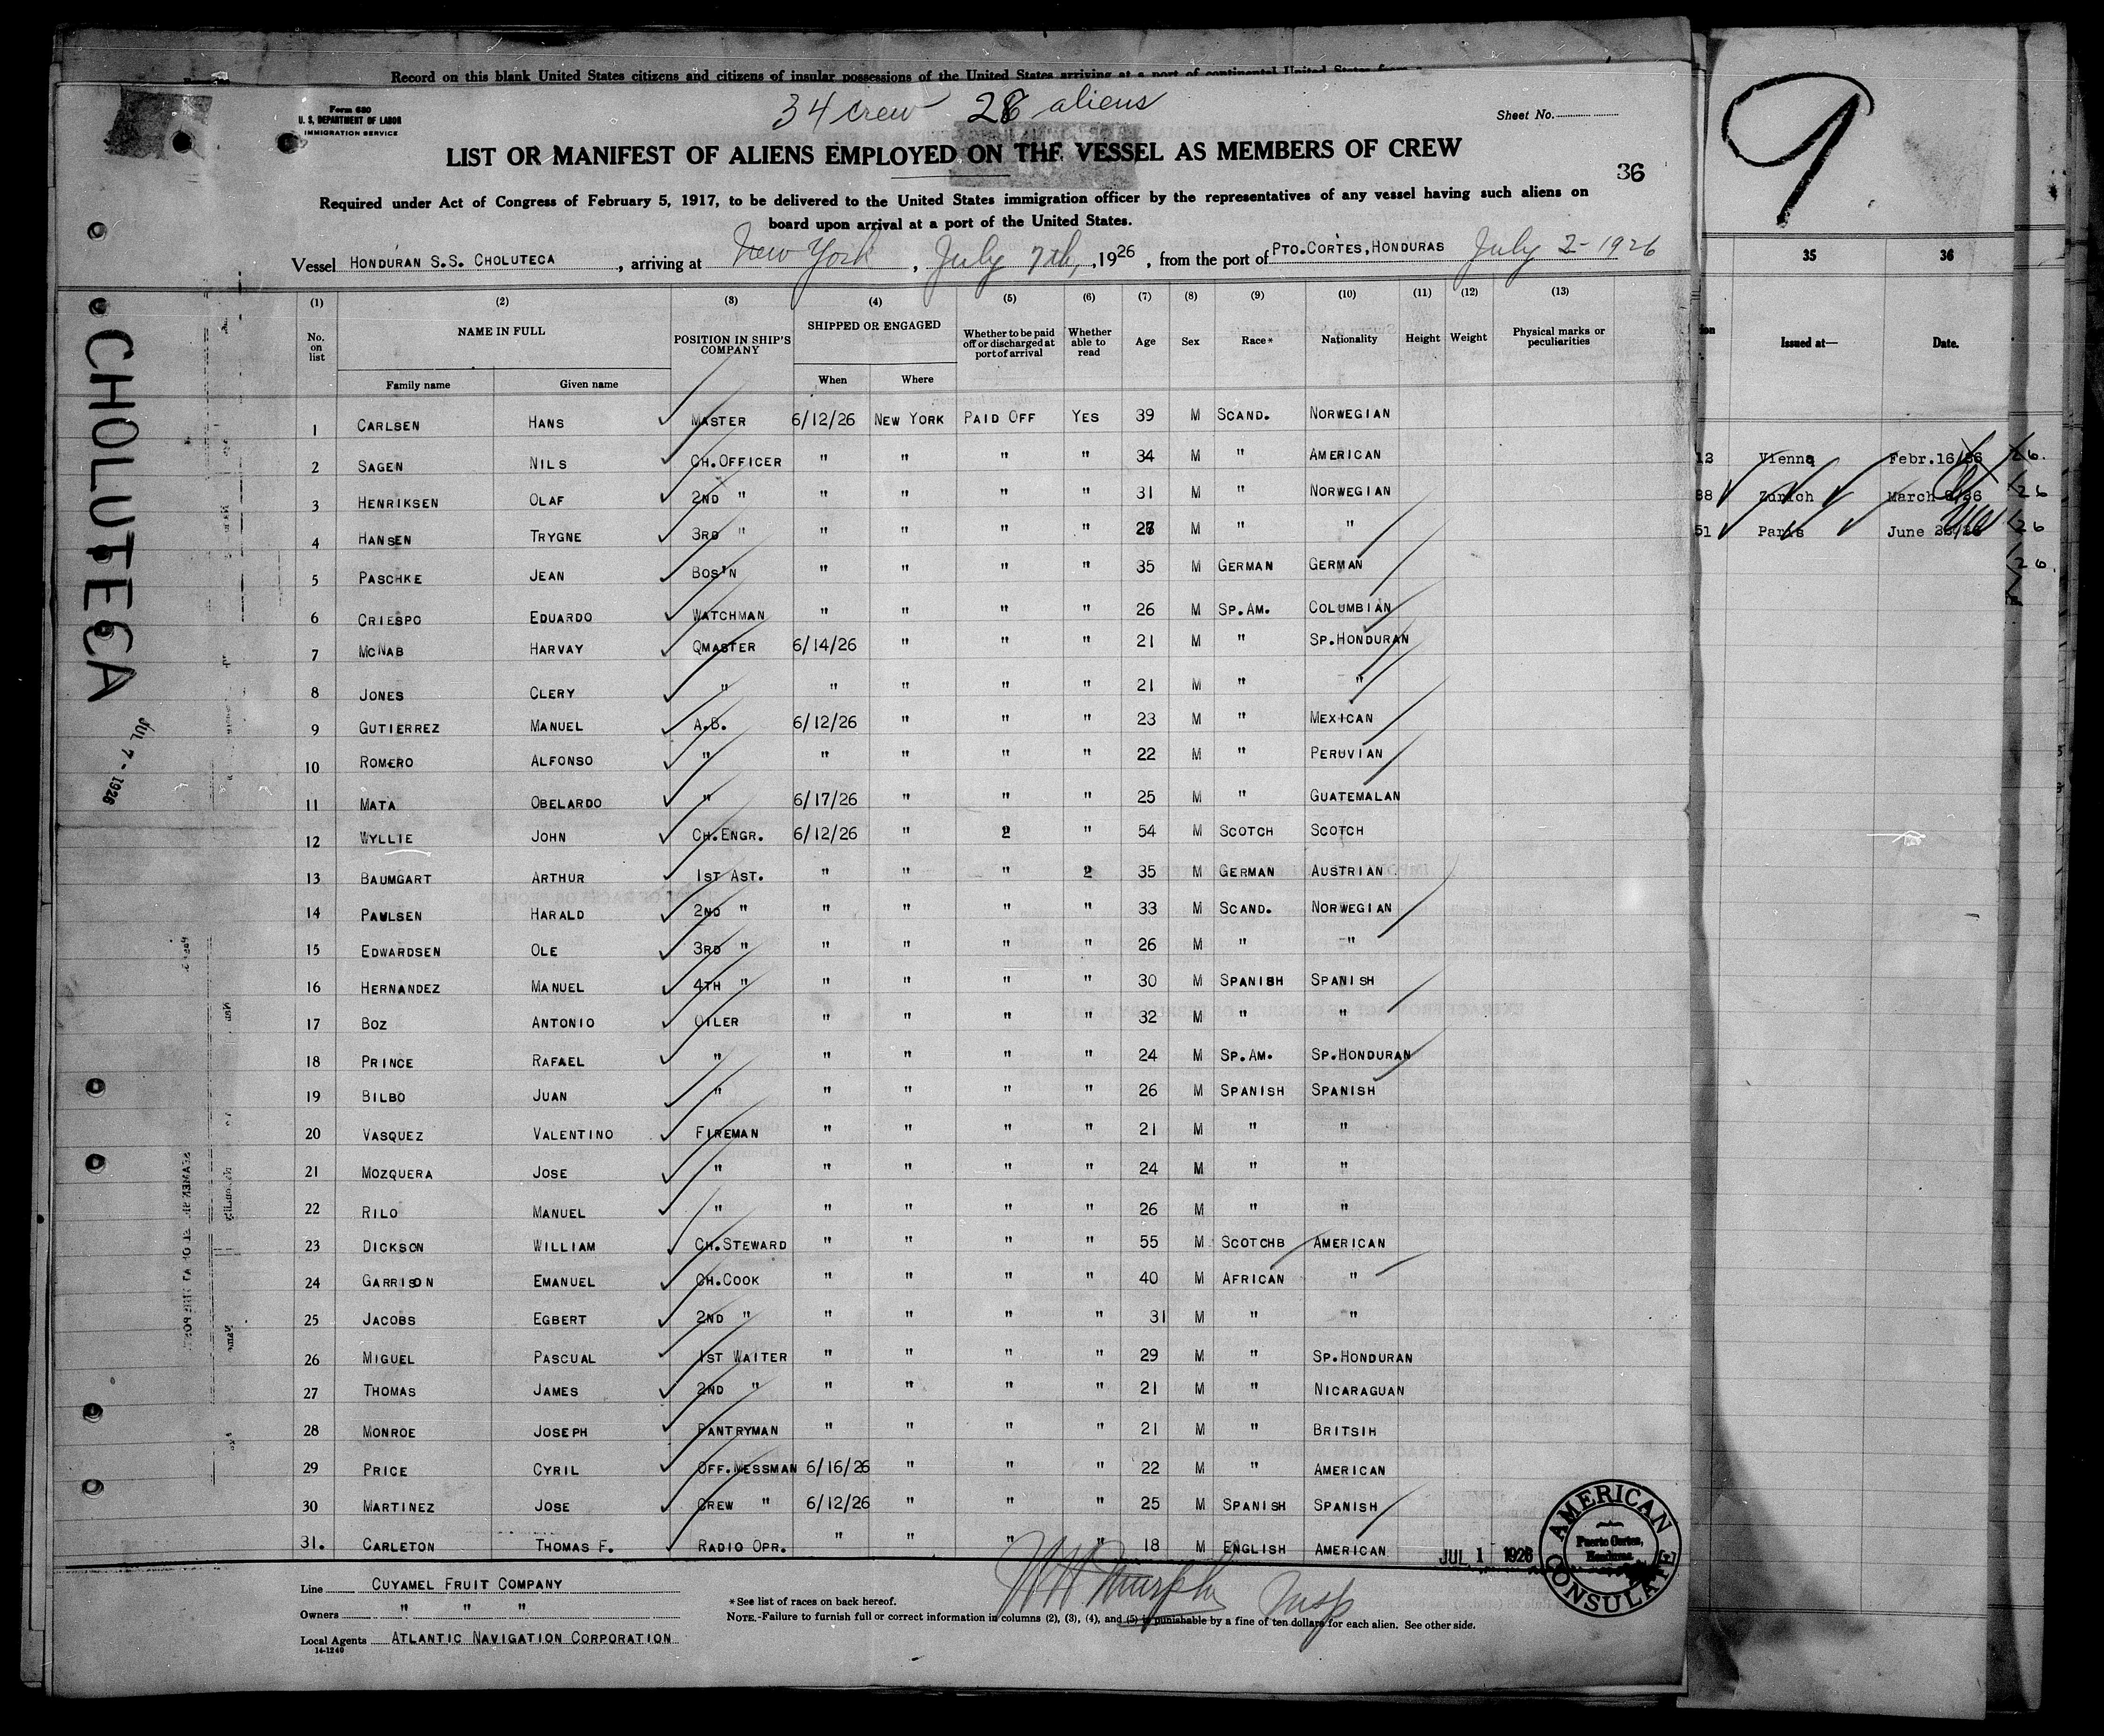 Record on this blank United States citizens and citizens of insular possessions of the United States arriving at a port of continental United States from
Form 680
U. S. DEPARTMENT OF LABOR
IMMIGRATION SERVICE
34 crew 28 aliens
Sheet No.
LIST OR MANIFEST OF ALIENS EMPLOYED ON THE VESSEL AS MEMBERS OF CREW
36
Required under Act of Congress of February 5, 1917, to be delivered to the United States immigration officer by the representatives of any vessel having such aliens on
board upon arrival at a port of the United States.
Vessel HONDURAN S.S. CHOLUTECA, arriving at New York, July 7th, 1926, from the port of PTO. CORTES, HONDURAS July 2- 1926
(1) (2) (3) (4) (5) (6) (7) (8) (9) (10) (11) (12) (13)
No. on list NAME IN FULL POSITION IN SHIP'S COMPANY SHIPPED OR ENGAGED Whether to be paid off or discharged at port of arrival Whether able to read Age Sex Race* Nationality Height Weight Physical marks or peculiarities
Family name Given name When Where
1 CARLSEN HANS MASTER 6/12/26 NEW YORK PAID OFF YES 39 M SCAND. NORWEGIAN
2 SAGEN NILS CH.OFFICER " " " " 34 M " AMERICAN
3 HENRIKSEN OLAF 2ND " " " " " 31 M " NORWEGIAN
4 HANSEN TRYGNE 3RD " " " " " M " "
5 PASCHKE JEAN BOS'N " " " " 35 M GERMAN GERMAN
6 CRIESPO EDUARDO WATCHMAN " " " " 26 M SP.AM. COLUMBIAN
7 MCNAB HARVAY QMASTER 6/14/26 " " " 21 M " SP.HONDURAN
8 JONES CLERY " " " " " 21 M " "
9 GUTIERREZ MANUEL A.B. 6/12/26 " " " 23 M " MEXICAN
10 ROMERO ALFONSO " " " " " 22 M " PERUVIAN
11 MATA OBELARDO " 6/17/26 " " " 25 M " GUATEMALAN
12 WYLLIE JOHN CH.ENGR. 6/12/26 " 2 " 54 M SCOTCH SCOTCH
13 BAUMGART ARTHUR 1ST AST. " " " 2 35 M GERMAN AUSTRIAN
14 PAULSEN HARALD 2ND " " " " " 33 M SCAND. NORWEGIAN
15 EDWARDSEN OLE 3RD " " " " " 26 M " "
16 HERNANDEZ MANUEL 4TH " " " " " 30 M SPANISH SPANISH
17 BOZ ANTONIO OILER " " " " 32 M " "
18 PRINCE RAFAEL " " " " " 24 M SP.AM. SP.HONDURAN
19 BILBO JUAN " " " " " 26 M SPANISH SPANISH
20 VASQUEZ VALENTINO FIREMAN " " " " 21 M " "
21 MOZQUERA JOSE " " " " " 24 M " "
22 RILO MANUEL " " " " " 26 M " "
23 DICKSON WILLIAM CH.STEWARD " " " " 55 M SCOTCHB AMERICAN
24 GARRISON EMANUEL CH.COOK " " " " 40 M AFRICAN "
25 JACOBS EGBERT 2ND " " " " " 31 M " "
26 MIGUEL PASCUAL 1ST WAITER " " " " 29 M " SP.HONDURAN
27 THOMAS JAMES 2ND " " " " " 21 M " NICARAGUAN
28 MONROE JOSEPH PANTRYMAN " " " " 21 M " BRITSIH
29 PRICE CYRIL OFF.MESSMAN 6/16/26 " " " 22 M " AMERICAN
30 MARTINEZ JOSE CREW " 6/12/26 " " " 25 M SPANISH SPANISH
31. CARLETON THOMAS F. RADIO OPR. " " " " 18 M ENGLISH AMERICAN
JUL 1 1926
AMERICAN CONSULATE
Puerto Cortes, Honduras
Line CUYAMEL FRUIT COMPANY
Owners " " "
Local Agents ATLANTIC NAVIGATION CORPORATION
14-1240
*See list of races on back hereof.
NOTE.-Failure to furnish full or correct information in columns (2), (3), (4), and (5) is punishable by a fine of ten dollars for each alien. See other side.
Murphy Insp
CHOLUTECA
JUL 7 - 1926
9
35 36
Issued at— Date.
12 Vienna Febr.16/ 26.
88 Zurich March 26
51 Paris June 26
26